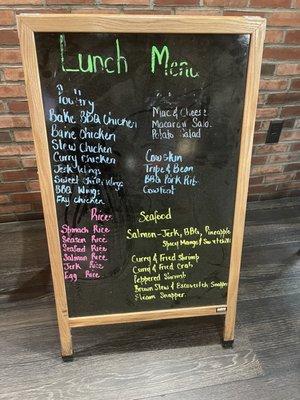 Lunch Menu
Poultry
Bake BBQ Chicken
Bane Chicken
Slew Chicken
Curry Chicken
Jerk Wings
Sweet chili Wings
BBQ Wings
Fry Chicken
Mac & Cheese
Macaroni Salad
Potato Salad
Cow skin
Tripe & Bean
BBQ Pork
Cowfeet
Rice
Spinach Rice
Season Rice
Seafood Rice
Salmon Rice
Jerk Rice
Egg Rice
Seafood
Salmon-Jerk, BBQ, Pineapple
Spicy Mango & Sweetchilli
Curry & Fried Shrimp
Curry & Fried Crab
Peppered Shrimp
Brown Stew & Escoveitch Snapper
Steam Snapper.